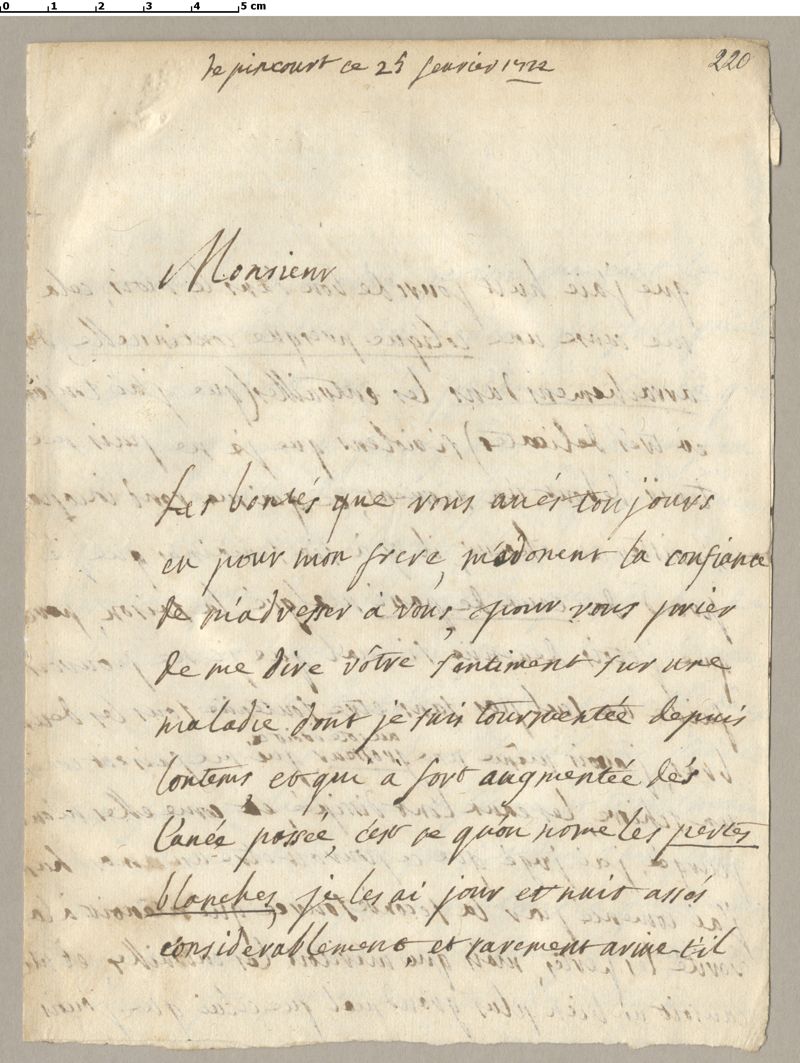 0 1 2 3 4 5 cm
de pincourt ce 25 fevrier 1722
220
Monsieur
Les bontés que vous avés toujours
eu pour mon frere, m'adonent la confiance
de m'adresser à vous, pour vous prier
de me dire vôtre sentiment sur une
maladie dont je suis tourmentée depuis
lontems, et qui à fort augmentée dés
l'anée passée, c'est ce qu'on nome les pertes
blanches, je les ai jour et nuit assés
considerablement et rarement arive-t'il